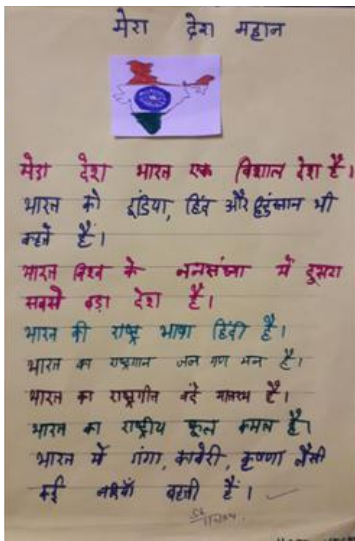 मेरा देश महान
मेरा देश भारत एक विशाल देश है।
भारत को इंडिया, हिंद और हिंदुस्तान भी
कहते हैं।
भारत विश्व के जनसंख्या में दुसरा
सबसे बड़ा देश है।
भारत की राष्ट्र भाषा हिंदी है।
भारत का राष्ट्रगान जन गण मन है।
भारत का राष्ट्रगीत वंदे मातरम है।
भारत का राष्ट्रीय फूल कमल है।
भारत में गंगा, कावेरी, कृष्णा जैसी
कई नदियाँ बहती हैं।